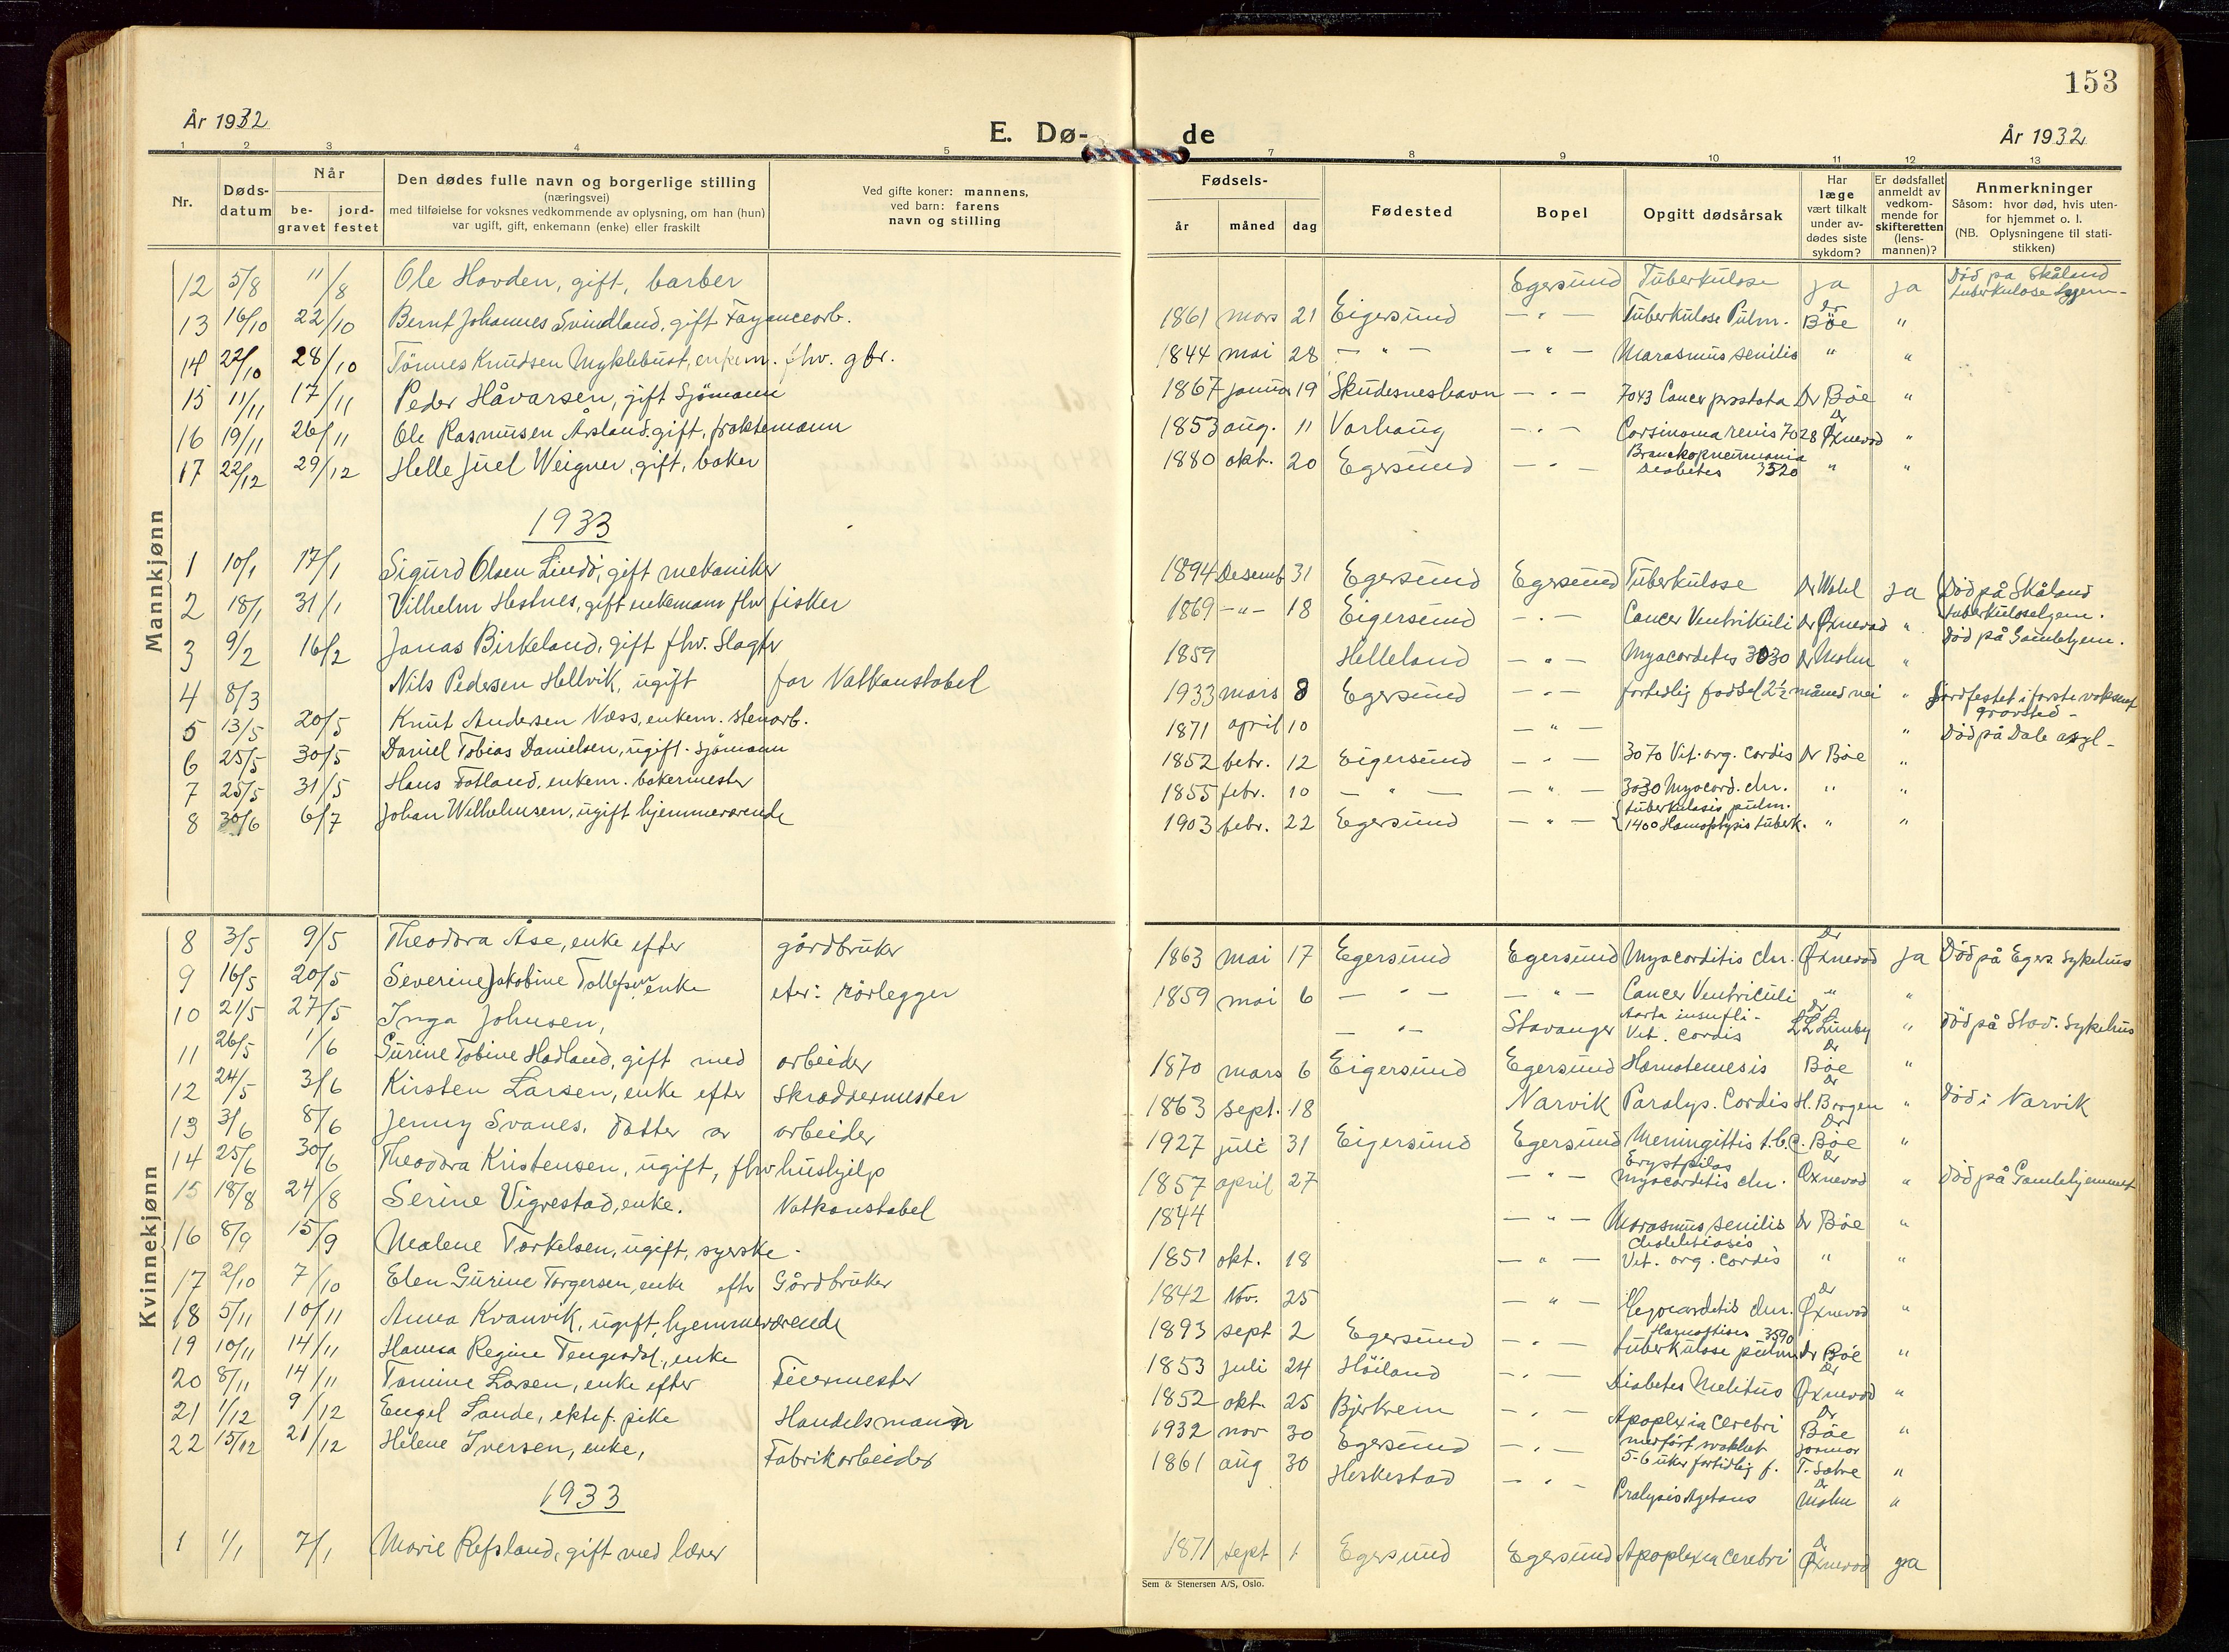 153
År 1932
E. Dø-
de
År 1932
1 2 3 4 5 7 8 9 10 11 12 13
Nr.
Døds-
datum
Når
be-
gravet
jord-
festet
Den dødes fulle navn og borgerlige stilling
(næringsvei)
med tilføielse for voksnes vedkommende av oplysning, om han (hun)
var ugift, gift, enkemann (enke) eller fraskilt
Ved gifte koner: mannens,
ved barn: farens
navn og stilling
Fødsels-
år måned dag
Fødested
Bopel
Opgitt dødsårsak
Har
læge
vært tilkalt
under av-
dødes siste
sykdom?
Er dødsfallet
anmeldt av
vedkom-
mende for
skifteretten
(lens-
mannen)?
Anmerkninger
Såsom: hvor død, hvis uten-
for hjemmet o. l.
(NB. Oplysningene til stati-
stikken)
Mannkjønn
12 5/8 11/8 Ole Hovden, gift, barber Egersund Tuberkulose ja ja Død på Skåland
tuberkulose
13 16/10 22/10 Bernt Johannes Svindland, gift Fayancearb. 1861 mars 21 Eigersund — " — Tuberkulose Pulm. Dr Bøe "
14 22/10 28/10 Tönnes Knudsen Myklebust, enkem. fhv. gbr. 1844 mai 28 — " — — " — Marasmus senilis " "
15 11/11 17/11 Peder Håvarsen, gift Sjömann 1867 januar 19 Skudesneshavn — " — 7043 Cancer prostata Dr Bøe "
16 19/11 26/11 Ole Rasmusen Årsland, gift, fraktemann 1853 aug. 11 Varhaug — " — Carsinoma renis 7028 Dr Øxnevad "
17 22/12 29/12 Helle Juel Weigner, gift, baker 1880 okt. 20 Egersund — " — Bronchopneumonia
Diabetes 3520 " "
1933
1 10/1 17/1 Sigurd Olsen Lindö, gift mekaniker 1894 Desemb 31 Egersund Egersund Tuberkulose Dr Wahl ja Død på Skåland
tuberkulosehjem.
2 18/1 31/1 Vilhelm Hestnes, gift enkemann fhv fisker 1869 — " — 18 Eigersund — " — Cancer Ventrikuli Dr Øxnevad " Död på Gamlehjem.
3 9/2 16/2 Jonas Birkeland, gift fhv. Slagter 1859 Helleland — " — Myocarditis 3030 Dr Molm "
4 8/3 Nils Pedersen Hellvik, ugift far Vaktkonstabel 1933 mars 8 Egersund — " — fortidlig födsel 2½ måned nei " Jordfestet i forste voksent
gravsted —
5 13/5 20/5 Knut Andersen Næss, enkem. stenarb. 1871 april 10 — " — " Död på Dale asyl —
6 25/5 30/5 Daniel Tobias Danielsen, ugift. Sjömann 1852 febr. 12 Eigersund — " — 3070 Vit. org. Cordis Dr Bøe "
7 25/5 31/5 Hans Fotland, enkem. bakermester 1855 febr. 10 — " — — " — 3030 Myocard. chr. " "
8 30/6 6/7 Johan Wilhelmsen, ugift hjemmeværende 1903 febr. 22 Egersund — " — tuberkulosis pulm.
1400 Hamoptysis tuberk. " "
Kvinnekjønn
8 3/5 9/5 Theodora Åse, enke efter gårdbruker 1863 mai 17 Egersund Egersund Myocarditis chr. Dr Øxnevad ja Död på Egers. Sykehus
9 16/5 20/5 Severine Jakobine Tollefsen, enke efter: rörlegger 1859 mai 6 — " — — " — Cancer Ventriculi " "
10 21/5 27/5 Inga Johnsen, — " — Stavanger Aorta insufli-
Vit. Cordis Dr Lumby " Död på Stav. Sykehus
11 26/5 1/6 Gurine Tobine Hadland, gift med arbeider 1870 mars 6 Eigersund Egersund Hæmatemesis Dr Bøe "
12 24/5 3/6 Kirsten Larsen, enke efter skræddermester 1863 sept. 18 Narvik Paralys. Cordis Dr H. Borgen " Död i Narvik
13 3/6 8/6 Jenny Svanes, datter av arbeider 1927 juli 31 Eigersund Egersund Meningittis t.b.c. Dr Bøe "
14 25/6 30/6 Theodora Kristensen, ugift, fhv hushjelp 1857 april 27 — " — Erysipilas
Myocarditis chr. Dr Øxnevad " Död på Gamlehjemmet
15 18/8 24/8 Serine Vigrestad, enke. Vaktkonstabel 1844 — " — Marasmus senilis Dr Bøe "
16 8/9 15/9 Malene Torkelsen, ugift, syerske — 1851 okt. 18 — " — Cholelitiasis
Vit. org. Cordis " "
17 2/10 7/10 Elen Gurine Torgersen, enke efter Gårdbruker 1842 Nov. 25 — " — Myocarditis chr. Dr Øxnevad "
18 5/11 10/11 Anna Kvanvik, ugift, hjemmeværende 1893 sept 2 Egersund — " — Hæmoptises 3590
tuberkulose pulm. Dr Bøe "
19 10/11 14/11 Hanna Regine Tengesdal, enke 1853 juli 24 Höiland — " — Diabetes Melitus Dr Øxnevad "
20 8/11 14/11 Tomine Larsen, enke efter Feiermester 1852 okt. 25 Bjerkrem — " — Apoplexia Cerebri Dr Bøe "
21 1/12 9/12 Engel Lande, ektef. pike Handelsmann 1932 nov 30 Egersund — " — medført svakhet
5-6 uker fortidlig f. jormor
T. Sætre "
22 15/12 21/12 Helene Iversen, enke, Fabrikarbeider 1861 aug 30 Heskestad — " — Pralysis Agetans Dr Molm "
1933
1 1/1 7/1 Marie Refsland, gift med lærer 1871 sept 1 Egersund Egersund Apoplexia Cerebri Dr Øxnevad ja
Sem & Stenersen A/S, Oslo.